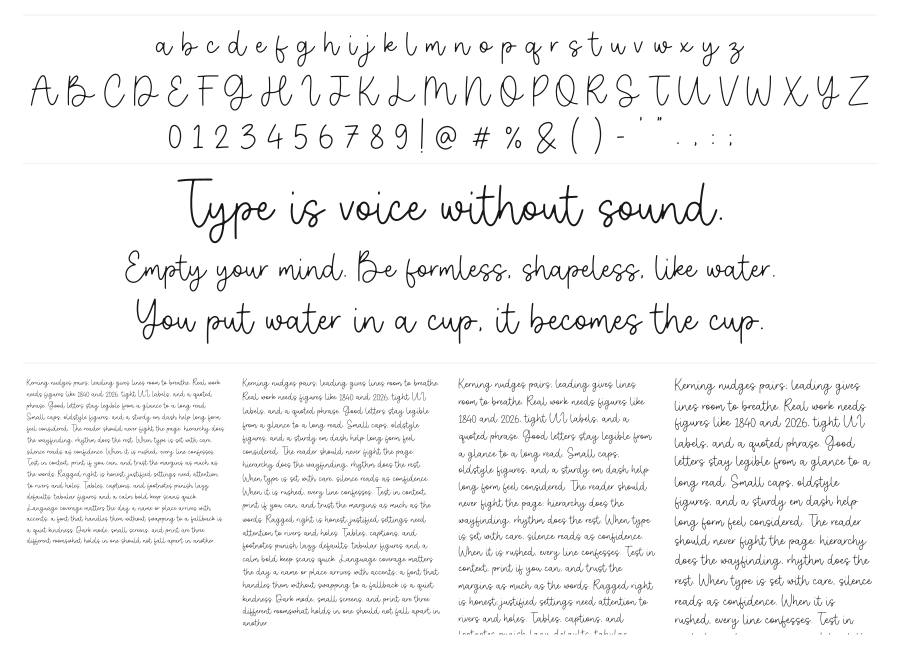 a b c d e f g h i j k l m n o p q r s t u v w x y z
A B C D E F G H I J K L M N O P Q R S T U V W X Y Z
0 1 2 3 4 5 6 7 8 9 ! @ # % & ( ) - ' " . , : ;
Type is voice without sound.
Empty your mind. Be formless, shapeless, like water.
You put water in a cup, it becomes the cup.
Kerning nudges pairs; leading gives lines room to breathe. Real work
needs figures like 1840 and 2026, tight UI labels, and a quoted
phrase. Good letters stay legible from a glance to a long read.
Small caps, oldstyle figures, and a sturdy em dash help long form
feel considered. The reader should never fight the page; hierarchy does
the wayfinding, rhythm does the rest. When type is set with care,
silence reads as confidence. When it is rushed, every line confesses.
Test in context, print if you can, and trust the margins as much as
the words. Ragged right is honest; justified settings need attention
to rivers and holes. Tables, captions, and footnotes punish lazy
defaults; tabular figures and a calm bold keep scans quick.
Language coverage matters the day a name or place arrives with
accents; a font that handles them without swapping to a fallback is
a quiet kindness. Dark mode, small screens, and print are three
different rooms; what holds in one should not fall apart in another.
Kerning nudges pairs; leading gives lines room to breathe.
Real work needs figures like 1840 and 2026, tight UI
labels, and a quoted phrase. Good letters stay legible
from a glance to a long read. Small caps, oldstyle
figures, and a sturdy em dash help long form feel
considered. The reader should never fight the page;
hierarchy does the wayfinding, rhythm does the rest.
When type is set with care, silence reads as confidence.
When it is rushed, every line confesses. Test in context,
print if you can, and trust the margins as much as the
words. Ragged right is honest; justified settings need
attention to rivers and holes. Tables, captions, and
footnotes punish lazy defaults; tabular figures and a
calm bold keep scans quick. Language coverage matters
the day a name or place arrives with accents; a font that
handles them without swapping to a fallback is a quiet
kindness. Dark mode, small screens, and print are three
different rooms; what holds in one should not fall apart in
another.
Kerning nudges pairs; leading gives lines
room to breathe. Real work needs figures like
1840 and 2026, tight UI labels, and a
quoted phrase. Good letters stay legible from
a glance to a long read. Small caps,
oldstyle figures, and a sturdy em dash help
long form feel considered. The reader should
never fight the page; hierarchy does the
wayfinding, rhythm does the rest. When type
is set with care, silence reads as confidence.
When it is rushed, every line confesses. Test in
context, print if you can, and trust the
margins as much as the words. Ragged right
is honest; justified settings need attention to
rivers and holes. Tables, captions, and
footnotes punish lazy defaults; tabular
Kerning nudges pairs; leading gives
lines room to breathe. Real work needs
figures like 1840 and 2026, tight UI
labels, and a quoted phrase. Good
letters stay legible from a glance to a
long read. Small caps, oldstyle
figures, and a sturdy em dash help
long form feel considered. The reader
should never fight the page; hierarchy
does the wayfinding, rhythm does the
rest. When type is set with care, silence
reads as confidence. When it is
rushed, every line confesses. Test in